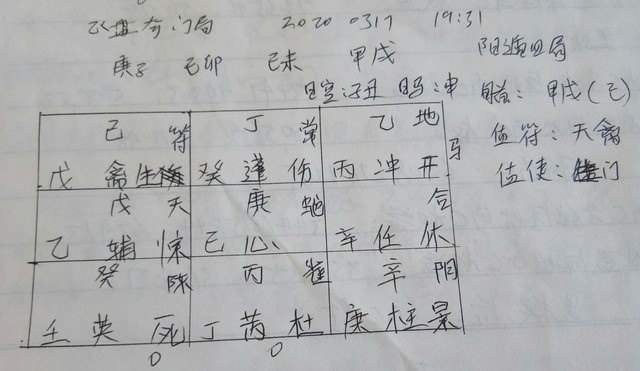 飞盘奇门局 2020 0317 19:31
庚子 己卯 己未 甲戌 阳遁四局
日空:子丑 日马:申 旬首:甲戌(己)
己 符 丁 常 乙 地 值符:天禽
戊 禽 生 癸 蓬 伤 丙 冲 开 马 值使:门
戊 天 庚 蛇 合
乙 辅 惊 己 心 辛 任 休
癸 陈 丙 辛 阴
壬 英 死 丁 芮 杜 庚 柱 景
O O